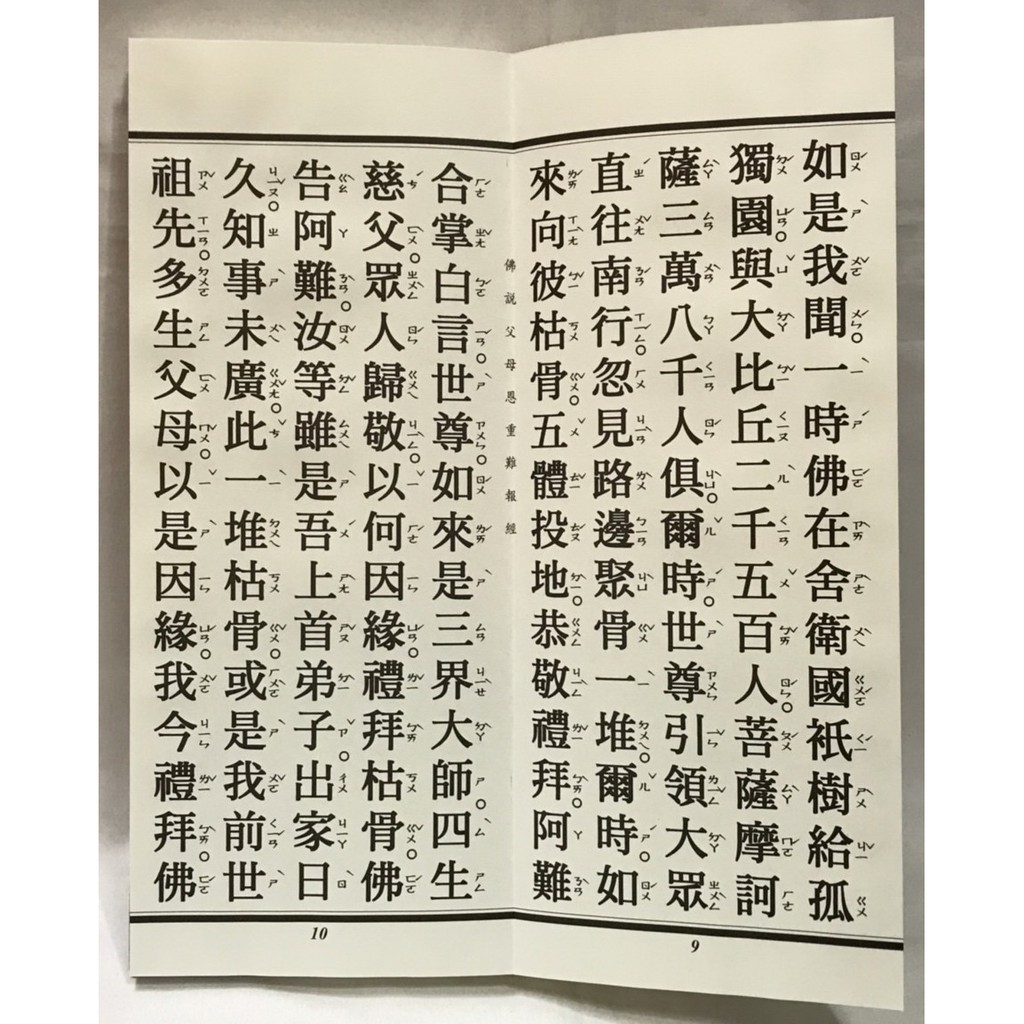 如是我聞。一時佛在舍衛國祇樹給孤
獨園。與大比丘二千五百人。菩薩摩訶
薩三萬八千人俱。爾時。世尊引領大眾
直往南行。忽見路邊聚骨一堆。爾時。如
來向彼枯骨。五體投地。恭敬禮拜。阿難
佛說父母恩重難報經
合掌白言。世尊。如來是三界大師。四生
慈父。眾人歸敬。以何因緣。禮拜枯骨。佛
告阿難。汝等雖是吾上首弟子。出家日
久。知事未廣。此一堆枯骨。或是我前世
祖先。多生父母。以是因緣。我今禮拜。佛
10
9